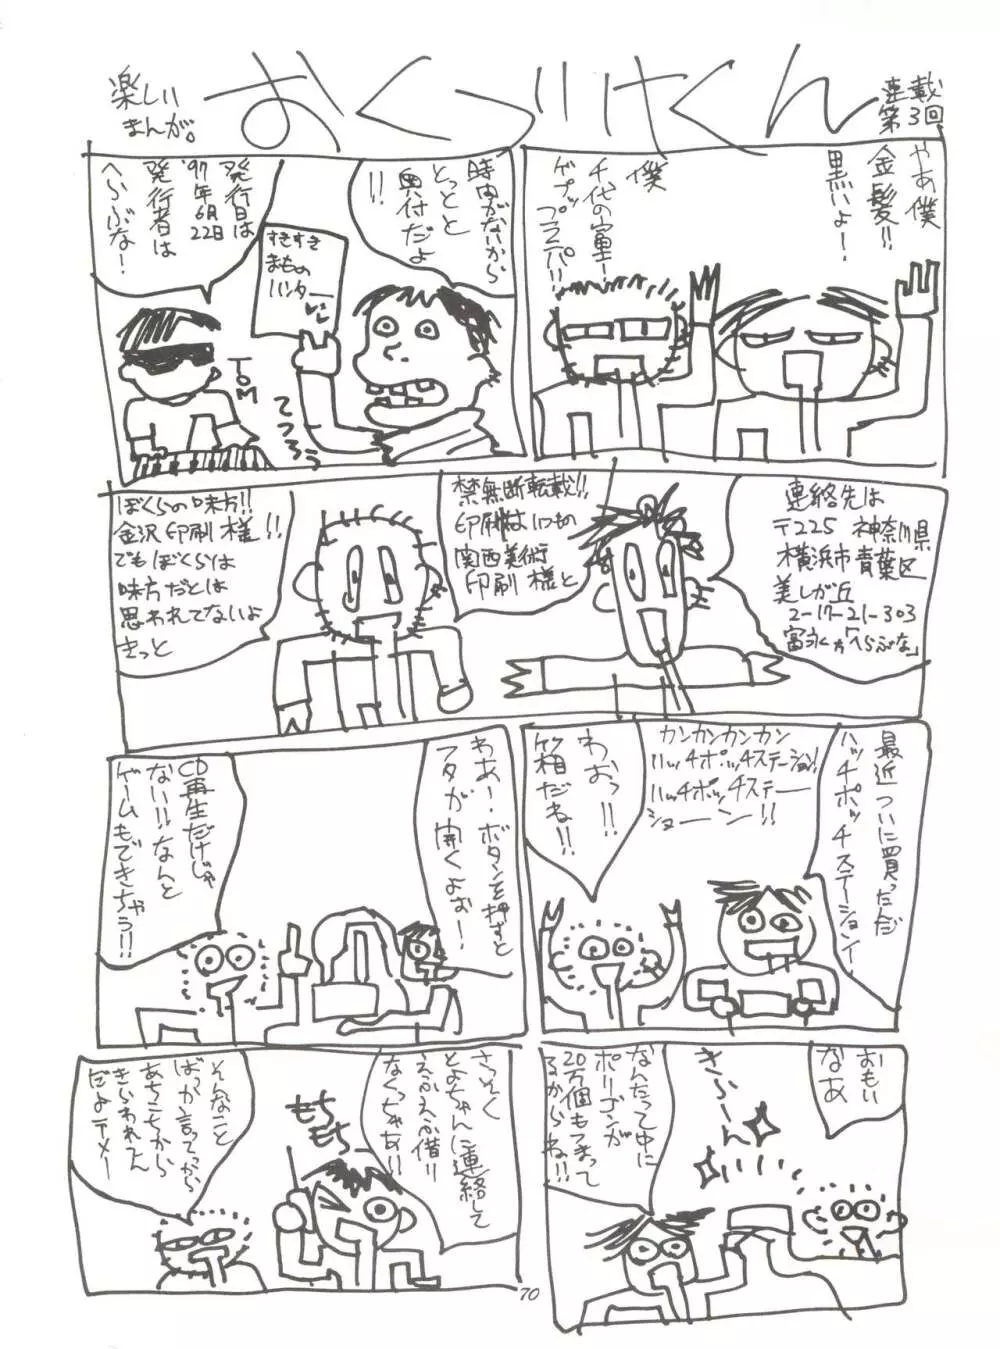 楽しい
まんが。
おくづけくん
連載
第3回
やあ僕
金髪!!
黒いよ!
僕
千代の富士!
ゲプップップパパ!!
時間がないから
とっとと
奥付だよ
!!
すきすき
まもの
ハンター
発行日は
'97年6月22日
発行者は
へらぶな!
TOM
てつろう
連絡先は
〒225 神奈川県
横浜市青葉区
美しが丘
2-17-21-303
富永方「へらぶな」
禁無断転載!!
印刷はいつもの
関西美術
印刷様と
ぼくらの味方!!
金沢印刷様!!
でもぼくらは
味方だとは
思われてないよ
きっと
最近ついに買っただ
ハッチポッチステーションイ
カンカンカンカン
ハッチポッチステーション!
ハッチポッチステー
ショーン!!
わおっ!!
箱だね!!
わあー、ボタンを押すと
フタが開くよぉー!
CD再生だけじゃ
ない!!なんと
ゲームもできちゃう!!
おもい
なあ
きらーん
なんたって中に
ポリゴンが
20万個もつまって
るからね!!
さっそく
とよちゃんに連絡して
えふえふ借り
なくっちゃあ!!
もち
もち
そんなこと
ばっか言ってっから
あちこちから
きらわれてん
だよテメー
70